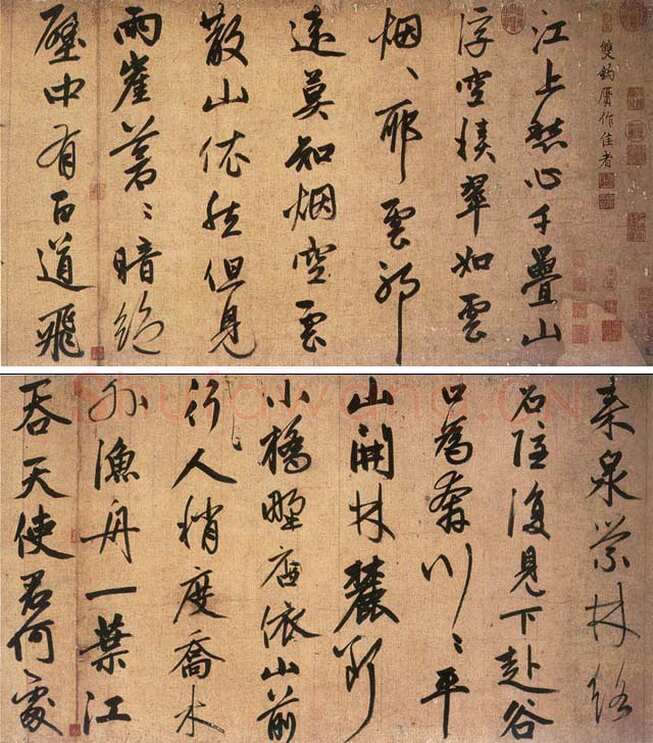 雙鉤贗作佳者
江上愁心千疊山
浮空積翠如雲
烟、耶雲耶
遠莫知烟空雲
散山依然但見
兩崖蒼〻暗絕
壁中有百道飛
來泉縈林絡
石隱復見下赴谷
口為奔川〻平
山開林麓斷
小橋野店依山前
行人稍度喬木
外漁舟一葉江
吞天使君何處
Shufawang.CN